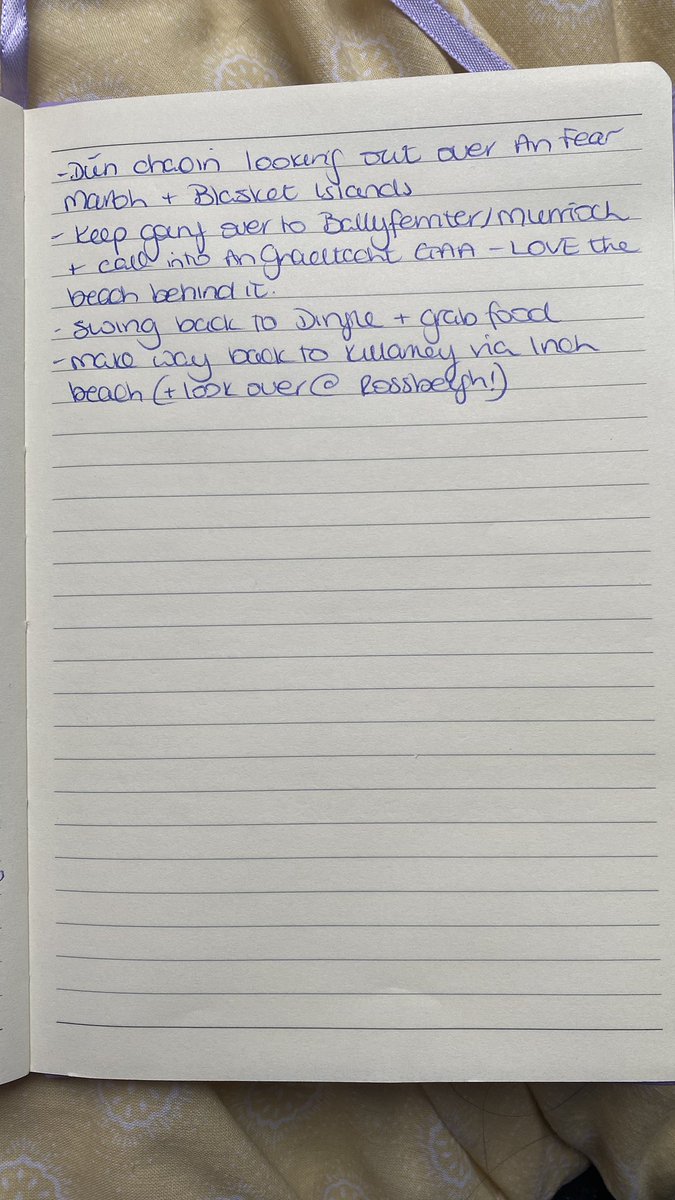 - Dún chaoin looking out over An Fear
Marbh + Blasket Islands
- Keep going over to Ballyferriter/Murrioch
+ call into An Graeltacht GAA - LOVE the
beach behind it.
- swing back to Dingle + grab food
- make way back to Killarney via Inch
beach (+ look over @ Rossbeigh!)